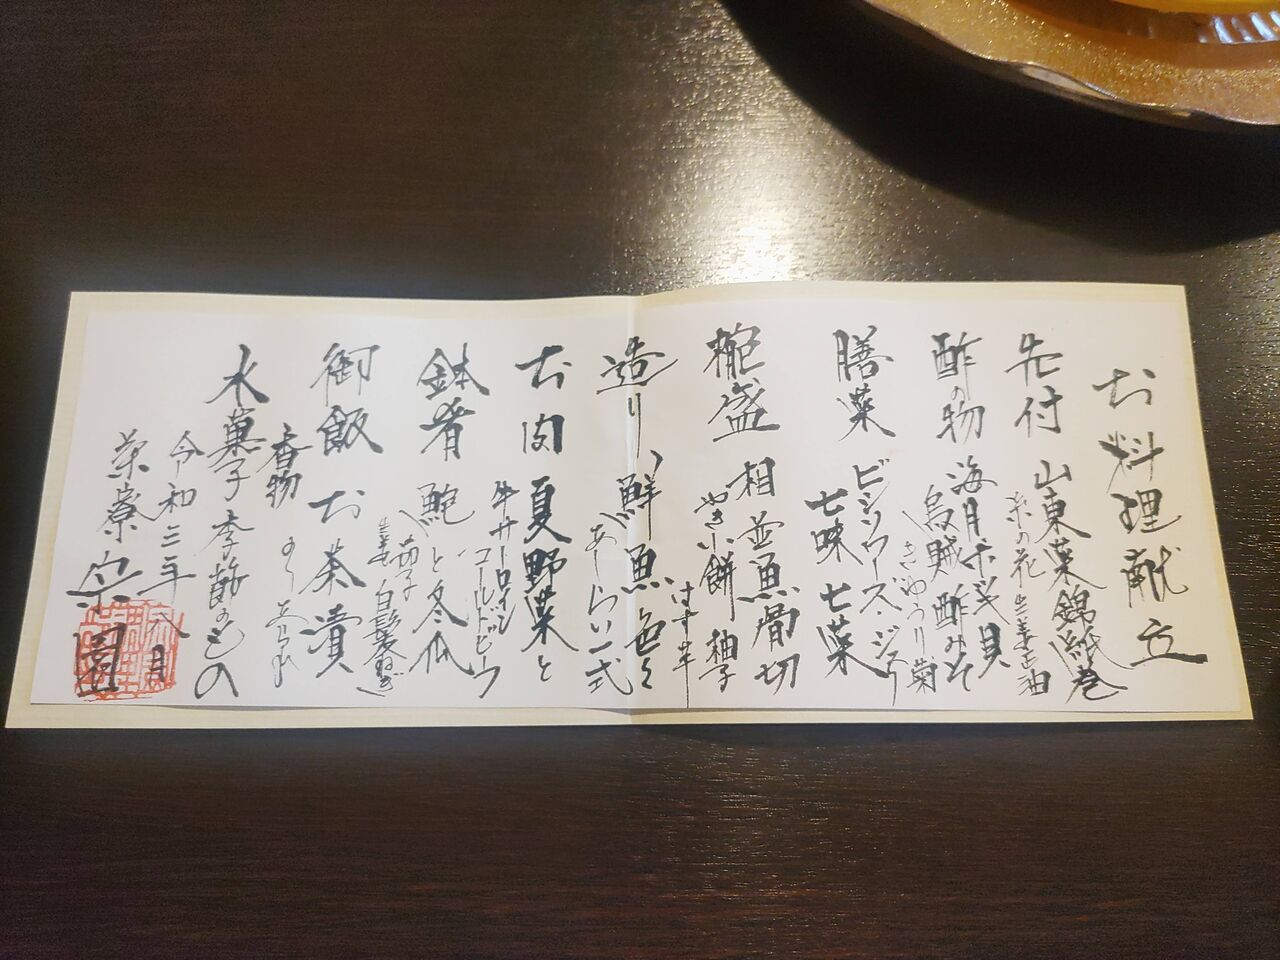 お料理献立
先付 山東菜錦紙巻
糸の花 生姜正油
酢の物 海月 赤貝
烏賊 酢みそ
きゆうり 菊
膳菜 ビシソワーズ ジュリ
七味 七菜
椀盛 相並魚骨切
やき小餅 柚子
はす芋
造り 鮮魚色々
あしらい一式
お肉 夏野菜と
牛サーロイン
コールドビーフ
鉢肴 鮑と冬瓜
茄子
生姜 白髪ねぎ
御飯 お茶漬
香物 のり あられ
水菓子 季節のもの
令和三年
八月
茶寮 宗園